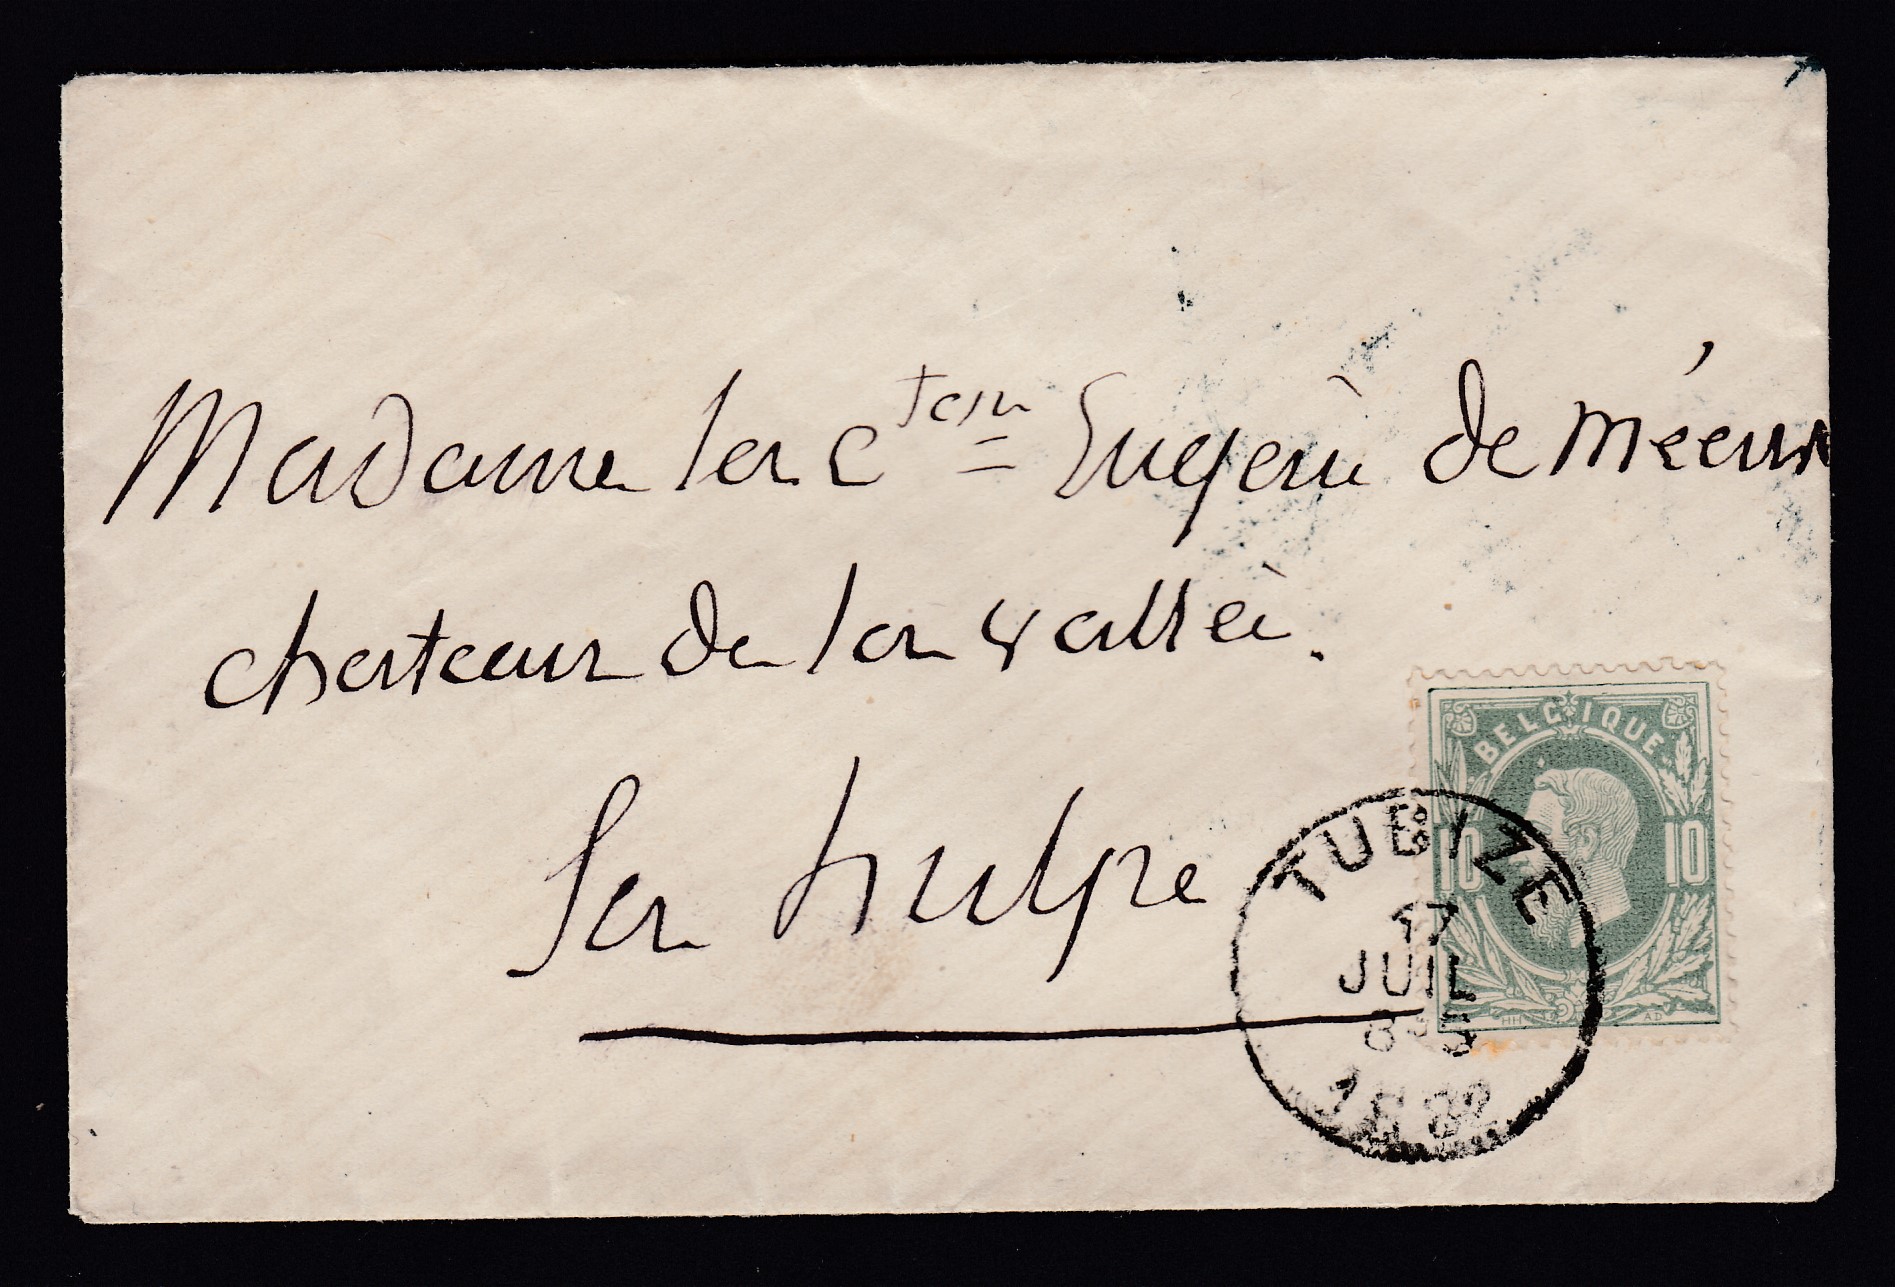 Madame la Ctesse Eugénie de Meeûs
chateau de la vallée.
La hulpe
BELGIQUE
10 10
HH AD
TUBIZE
17
JUIL
8-S
1882